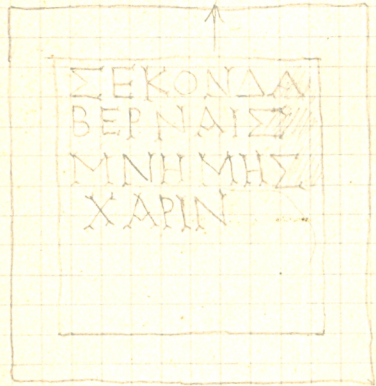 ΣΕΚΟΝΔΑ
ΒΕΡΝΑΙΣ
ΜΝΗΜΗΣ
ΧΑΡΙΝ